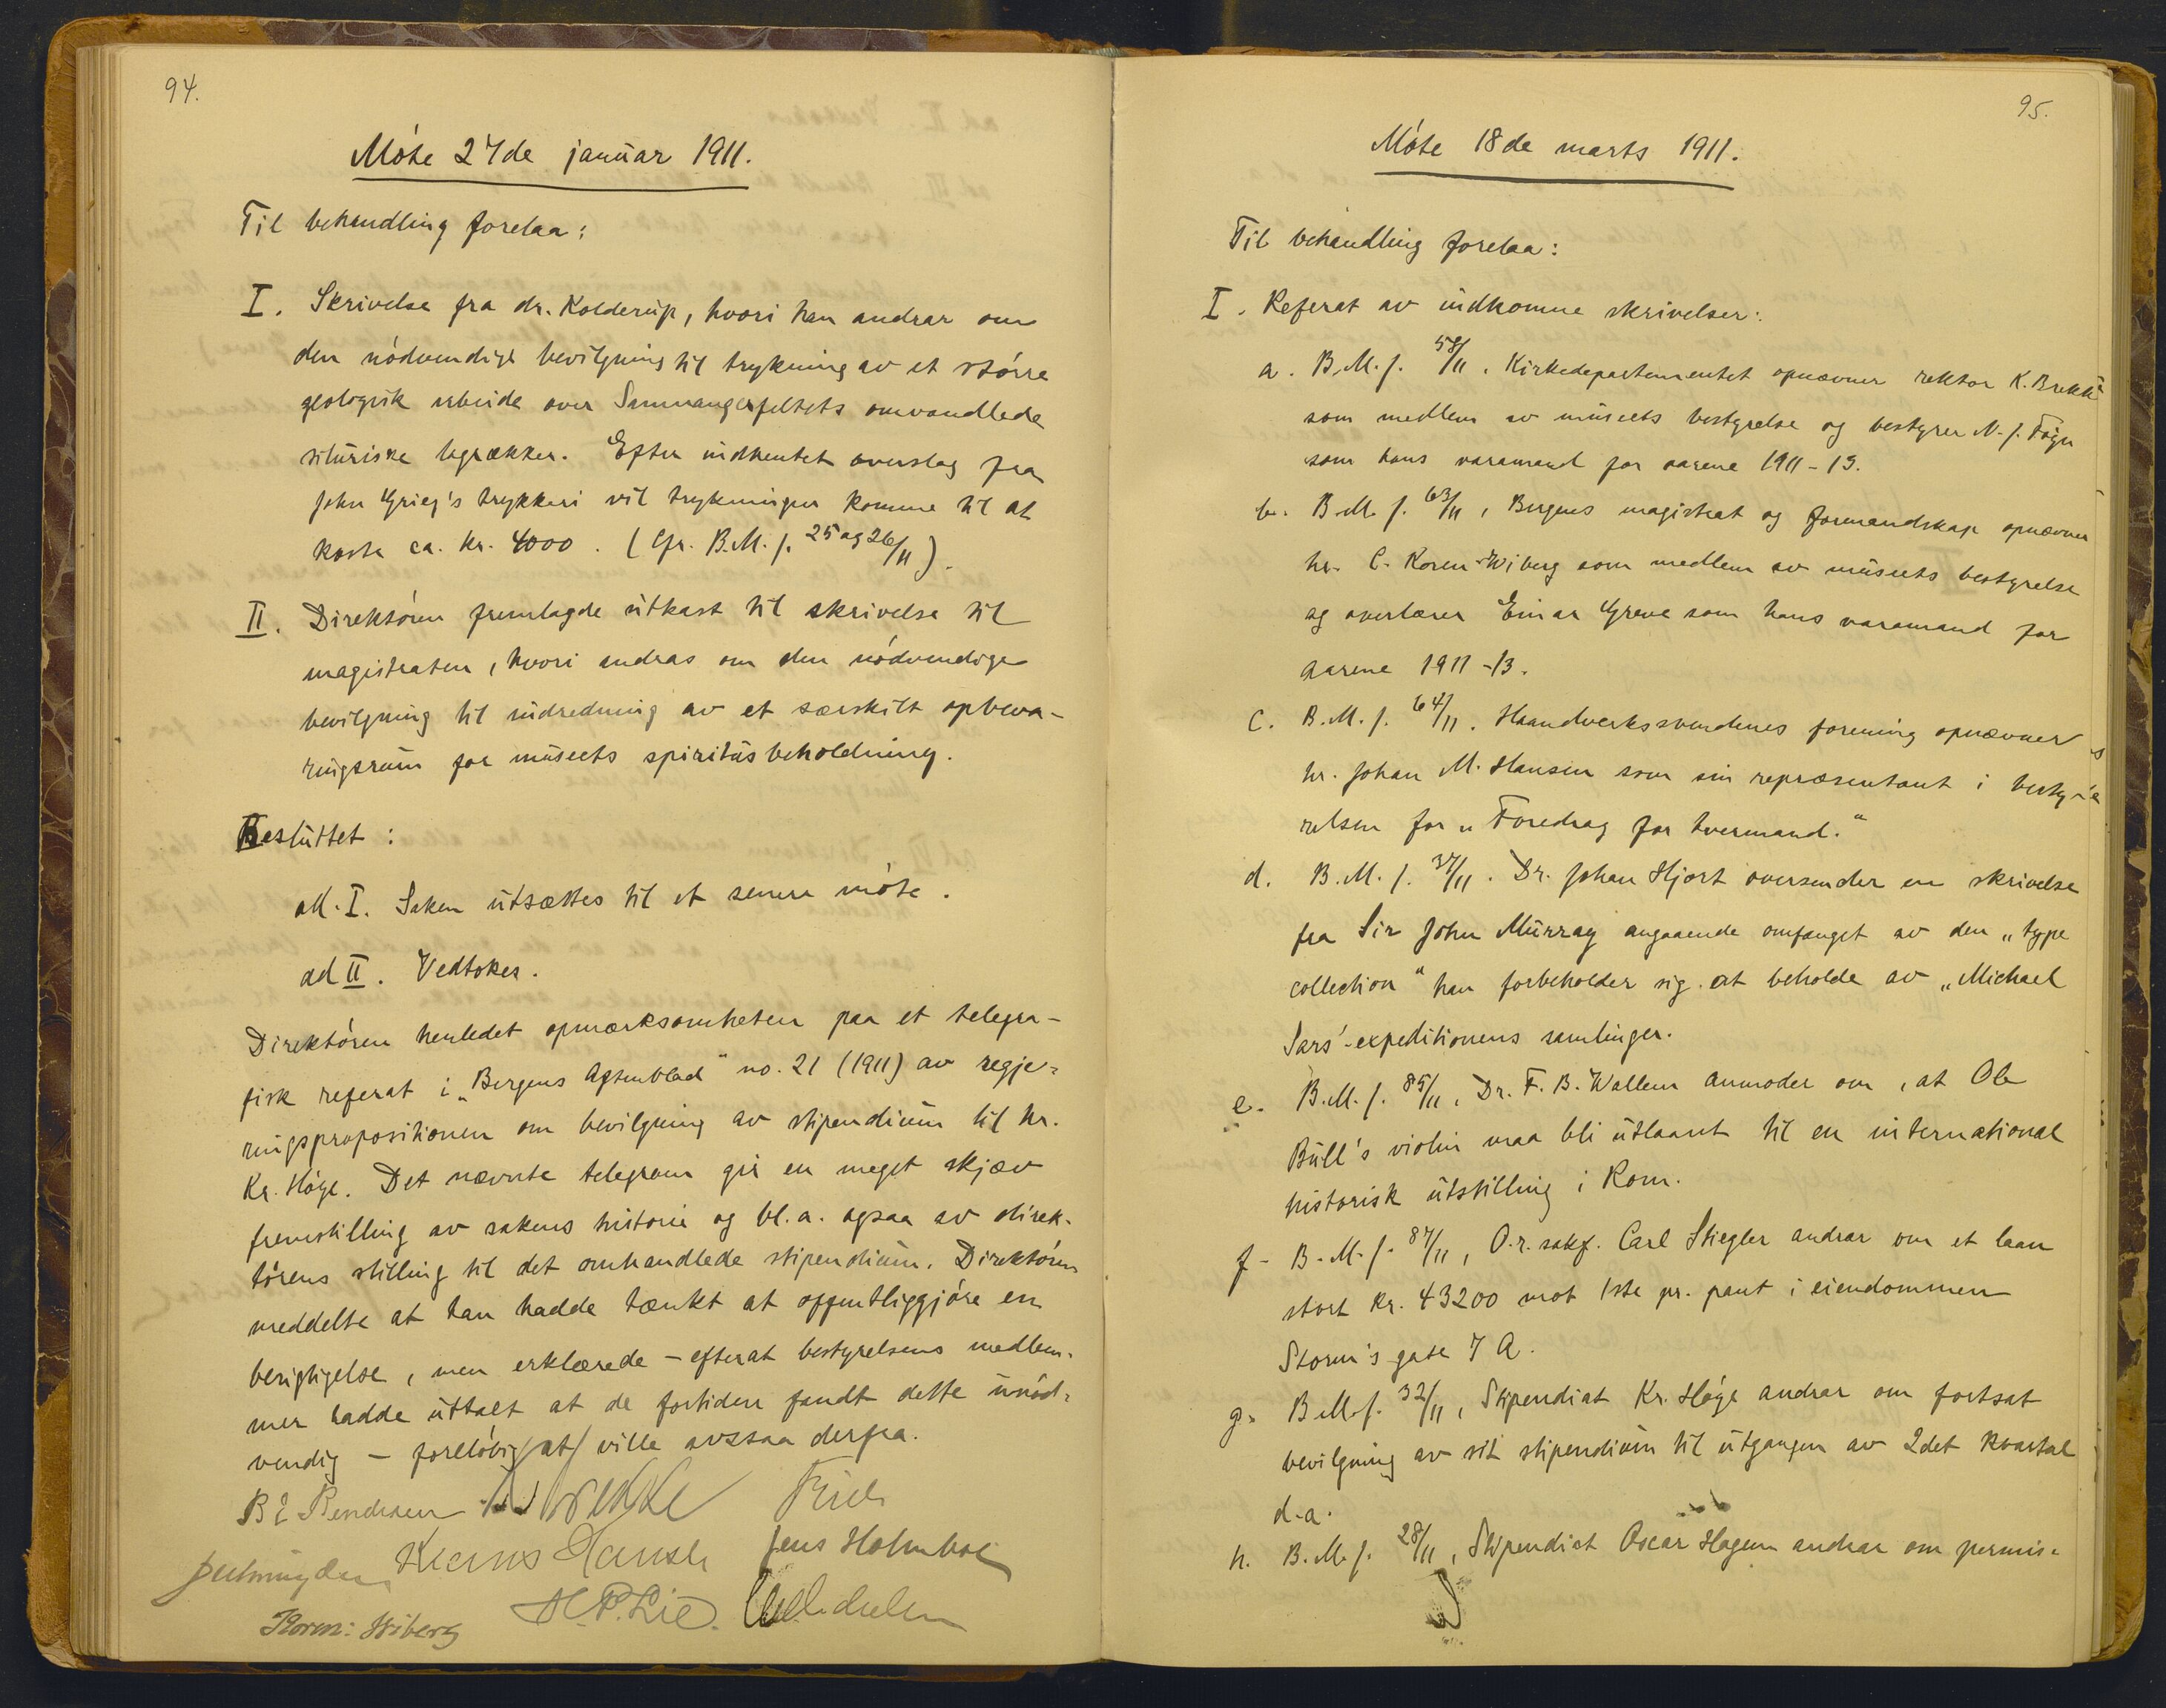 94.
Møte 27de januar 1911.
Til behandling forelaa:
I. Skrivelse fra dr. Kolderup, hvori han andrar om
den nödvendige bevilgning til trykning av et större
geologisk arbeide over Samnangerfeltets omvandlede
siluriske lagrækker. Efter indhentet overslag fra
John Grieg's trykkeri vil trykningen komme til at
koste ca. kr. 4000. (Cfr. B.M.j. 25 og 26/11).
II. Direktören fremlagde utkast til skrivelse til
magistraten, hvori andras om den nödvendige
bevilgning til indredning av et særskilt opbeva-
ringsrum for museets spiritusbeholdning.
Besluttet:
ad. I. Saken utsættes til et senere möte.
ad II. Vedtokes.
Direktören henledet opmærksomheten paa et telegra-
fisk referat i „Bergens Aftenblad" no. 21 (1911) av regje-
ringspropositionen om bevilgning av stipendium til hr.
Kr. Höye. Det nævnte telegram gir en meget skjæv
fremstilling av sakens historie og bl.a. ogsaa av direk-
törens stilling til det omhandlede stipendium. Direktören
meddelte at han hadde tænkt at offentliggjöre en
berigtigelse, men erklærede – efterat bestyrelsens medlem-
mer hadde uttalt at de fortiden fandt dette unöd-
vendig – foreløbig at ville avstaa derfra.
B E Bendixen Brekke
Klaus Hansen Jens Holmboe
Koren-Wiberg H.P. Lie.
95.
Möte 18de marts 1911.
Til behandling forelaa:
I. Referat av indkomne skrivelser:
a. B.M.j. 58/11. Kirkedepartementet opnævner rektor K. Brekke
som medlem av museets bestyrelse og bestyrer N. J. Föyn
som hans varamand for aarene 1911-13.
b. B.M.j. 63/11, Bergens magistrat og formandskap opnævner
hr. C. Koren-Wiberg som medlem av museets bestyrelse
og overlærer Einar Greve som hans varamand for
aarene 1911-13.
c. B.M.j. 64/11. Haandverkssvendenes forening opnævner
hr. Johan M. Hansen som sin repræsentant i besty-
relsen for „Foredrag for hvermand."
d. B.M.j. 37/11. Dr. Johan Hjort oversender en skrivelse
fra Sir John Murray angaaende omfanget av den „type
collection" han forbeholder sig at beholde av „Michael
Sars'-expeditionens samlinger.
e. B.M.j. 85/11, Dr. F. B. Wallem anmoder om, at Ole
Bull's violin maa bli utlaant til en international
historisk utstilling i Rom.
f- B.M.j. 87/11, O.r.sakf. Carl Stiegler andrar om et laan
stort kr. 43200 mot 1ste pr. pant i eiendommen
Storm's gate 7 A.
g. B.M.j. 32/11, Stipendiat Kr. Höye andrar om fortsat
bevilgning av sit stipendium til utgangen av 2det kvartal
d.a.
h. B.M.j. 28/11, Stipendiat Oscar Hagem andrar om permis-